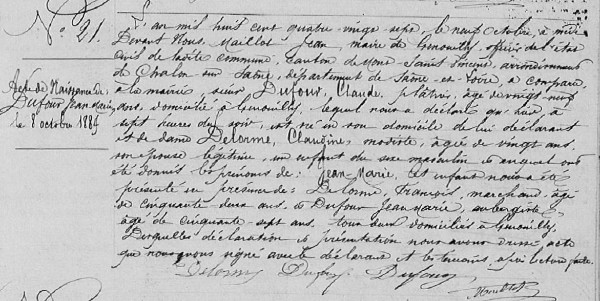 N° 21.
Acte de Naissance de
Dufour Jean Marie
le 8 octobre 1887
L'an mil huit cent quatre vingt sept, le neuf Octobre, à midi
Devant Nous Maillot Jean, maire de Genouilly, officier de l'état
civil de ladite commune, canton de Mont-Saint-Vincent, arrondissement
de Chalon-sur-Saône, département de Saône-et-Loire, a comparu
à la mairie, sieur Dufour, Claude, plâtrier, âgé de vingt neuf
ans, domicilié à Genouilly, lequel nous a déclaré que hier à
sept heures du soir, est né en son domicile de lui déclarant
et de dame Delorme, Claudine, modiste, âgée de vingt ans,
son épouse légitime, un enfant du sexe masculin et auquel ont
été donnés les prénoms de: Jean-Marie, cet enfant nous a été
présenté en présence de: Delorme, François, marchand, âgé
de cinquante deux ans, et Dufour Jean Marie, aubergiste,
âgé de cinquante sept ans, tous deux domiciliés à Genouilly.
Desquelles déclaration et présentation nous avons dressé acte
que nous avons signé avec le déclarant et les témoins, après lecture faite.
Delorme Dufour Dufour
Maillot